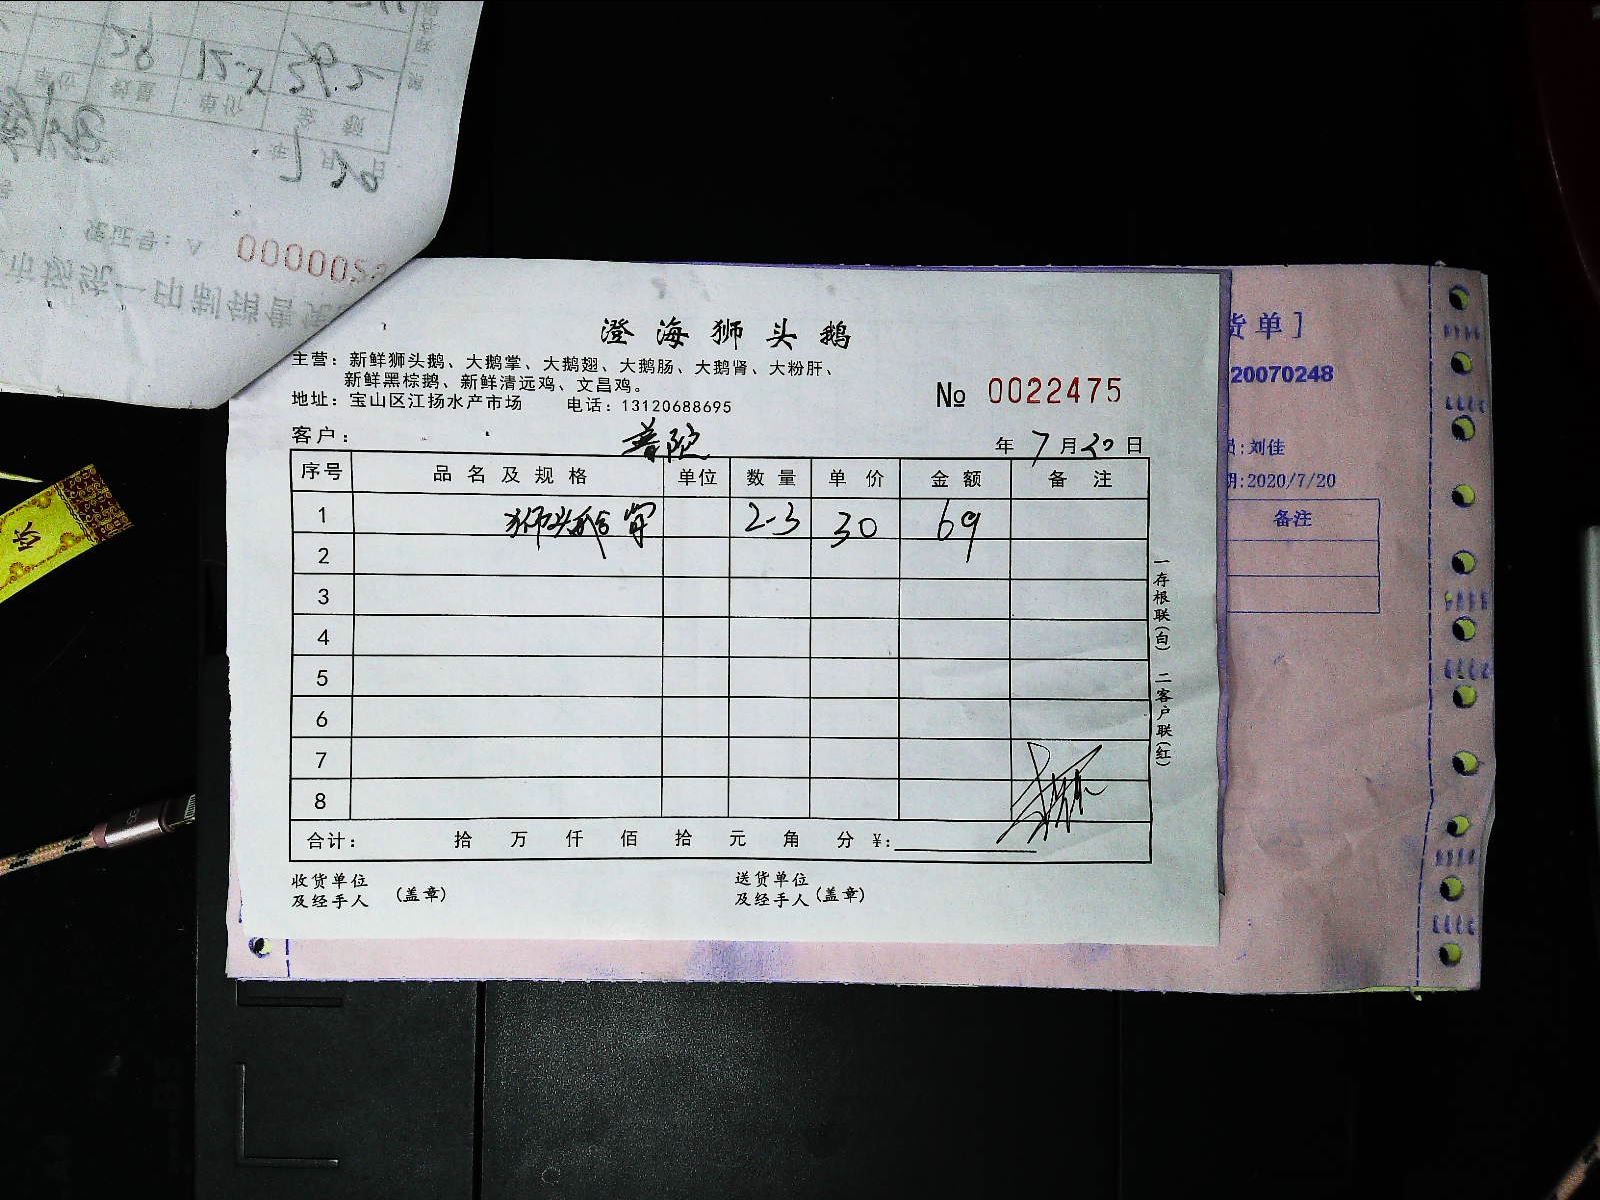 澄海狮头鹅
主营：新鲜狮头鹅、大鹅掌、大鹅翅、大鹅肠、大鹅肾、大粉肝、
新鲜黑棕鹅、新鲜清远鸡、文昌鸡。
地址：宝山区江扬水产市场 电话：13120688695
№ 0022475
客户： 普陀 年 7 月 20 日
序号 品名及规格 单位 数量 单价 金额 备注
1 狮头鹅肾 2-3 30 69
2
3
4
5
6
7
8
合计： 拾 万 仟 佰 拾 元 角 分 ¥:
收货单位
及经手人 (盖章)
送货单位
及经手人 (盖章)
一存根联(白) 二客户联(红)
货单]
20070248
员:刘佳
期:2020/7/20
备注
市场统一印制销售凭
凭证号：A 000005
年 7 月 20 日
单位 数量 单价 金额
28 12.5